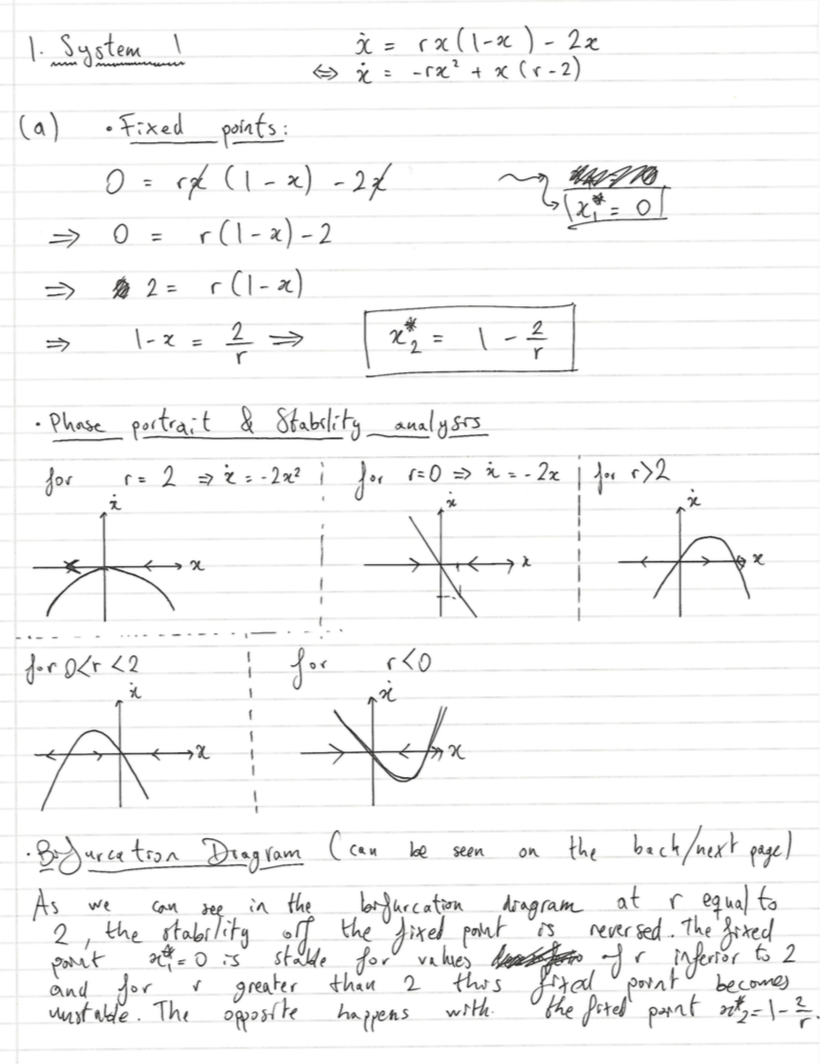 1. System 1 ẋ = rx(1-x) - 2x
⇔ ẋ = -rx² + x(r-2)
(a) • Fixed points:
0 = rx(1-x) - 2x
x₁* = 0
⇒ 0 = r(1-x) - 2
⇒ 2 = r(1-x)
⇒ 1-x = 2/r ⇒ x₂* = 1 - 2/r
• Phase portrait & Stability analysis
for r = 2 ⇒ ẋ = -2x² for r=0 ⇒ ẋ = -2x for r>2
ẋ ẋ ẋ
x x x
for 0<r<2 for r<0
ẋ ẋ
x x
• Bifurcation Diagram (can be seen on the back/next page)
As we can see in the bifurcation diagram at r equal to
2, the stability off the fixed point is reversed. The fixed
point x₁* = 0 is stable for values of r inferior to 2
and for r greater than 2 this fixed point becomes
unstable. The opposite happens with the fixed point x₂* = 1 - 2/r.